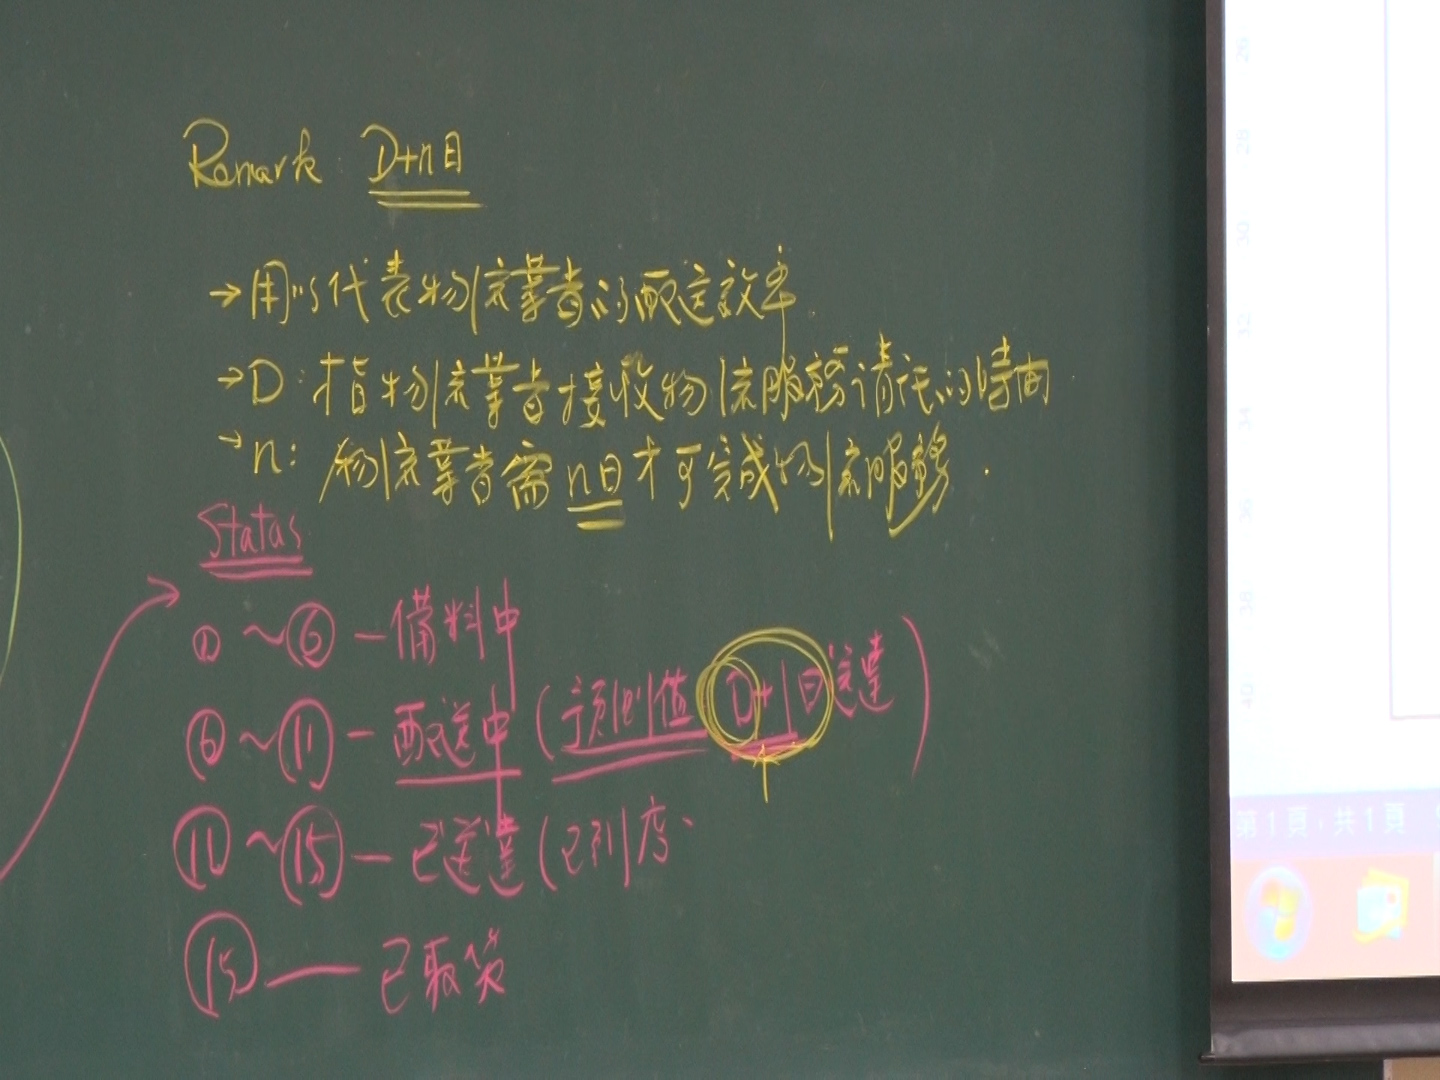 Remark: D+n日
→用以代表物流業者的配送效率.
→D:指物流業者接收物流服務請託的時間.
→n:物流業者需n日才可完成物流服務.
Status
①~⑥—備料中
⑥~⑪—配送中(預測值D+1日送達)
⑪~⑮—已送達(已到店、
⑮—已取貨
第1頁,共1頁